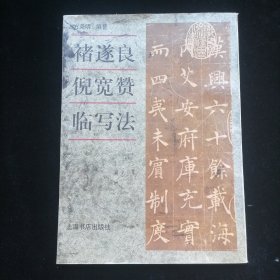 褚遂良
倪宽赞
临写法
上海书店出版社
漢興六十餘載海
内艾安府庫充實
而四夷未賓制度